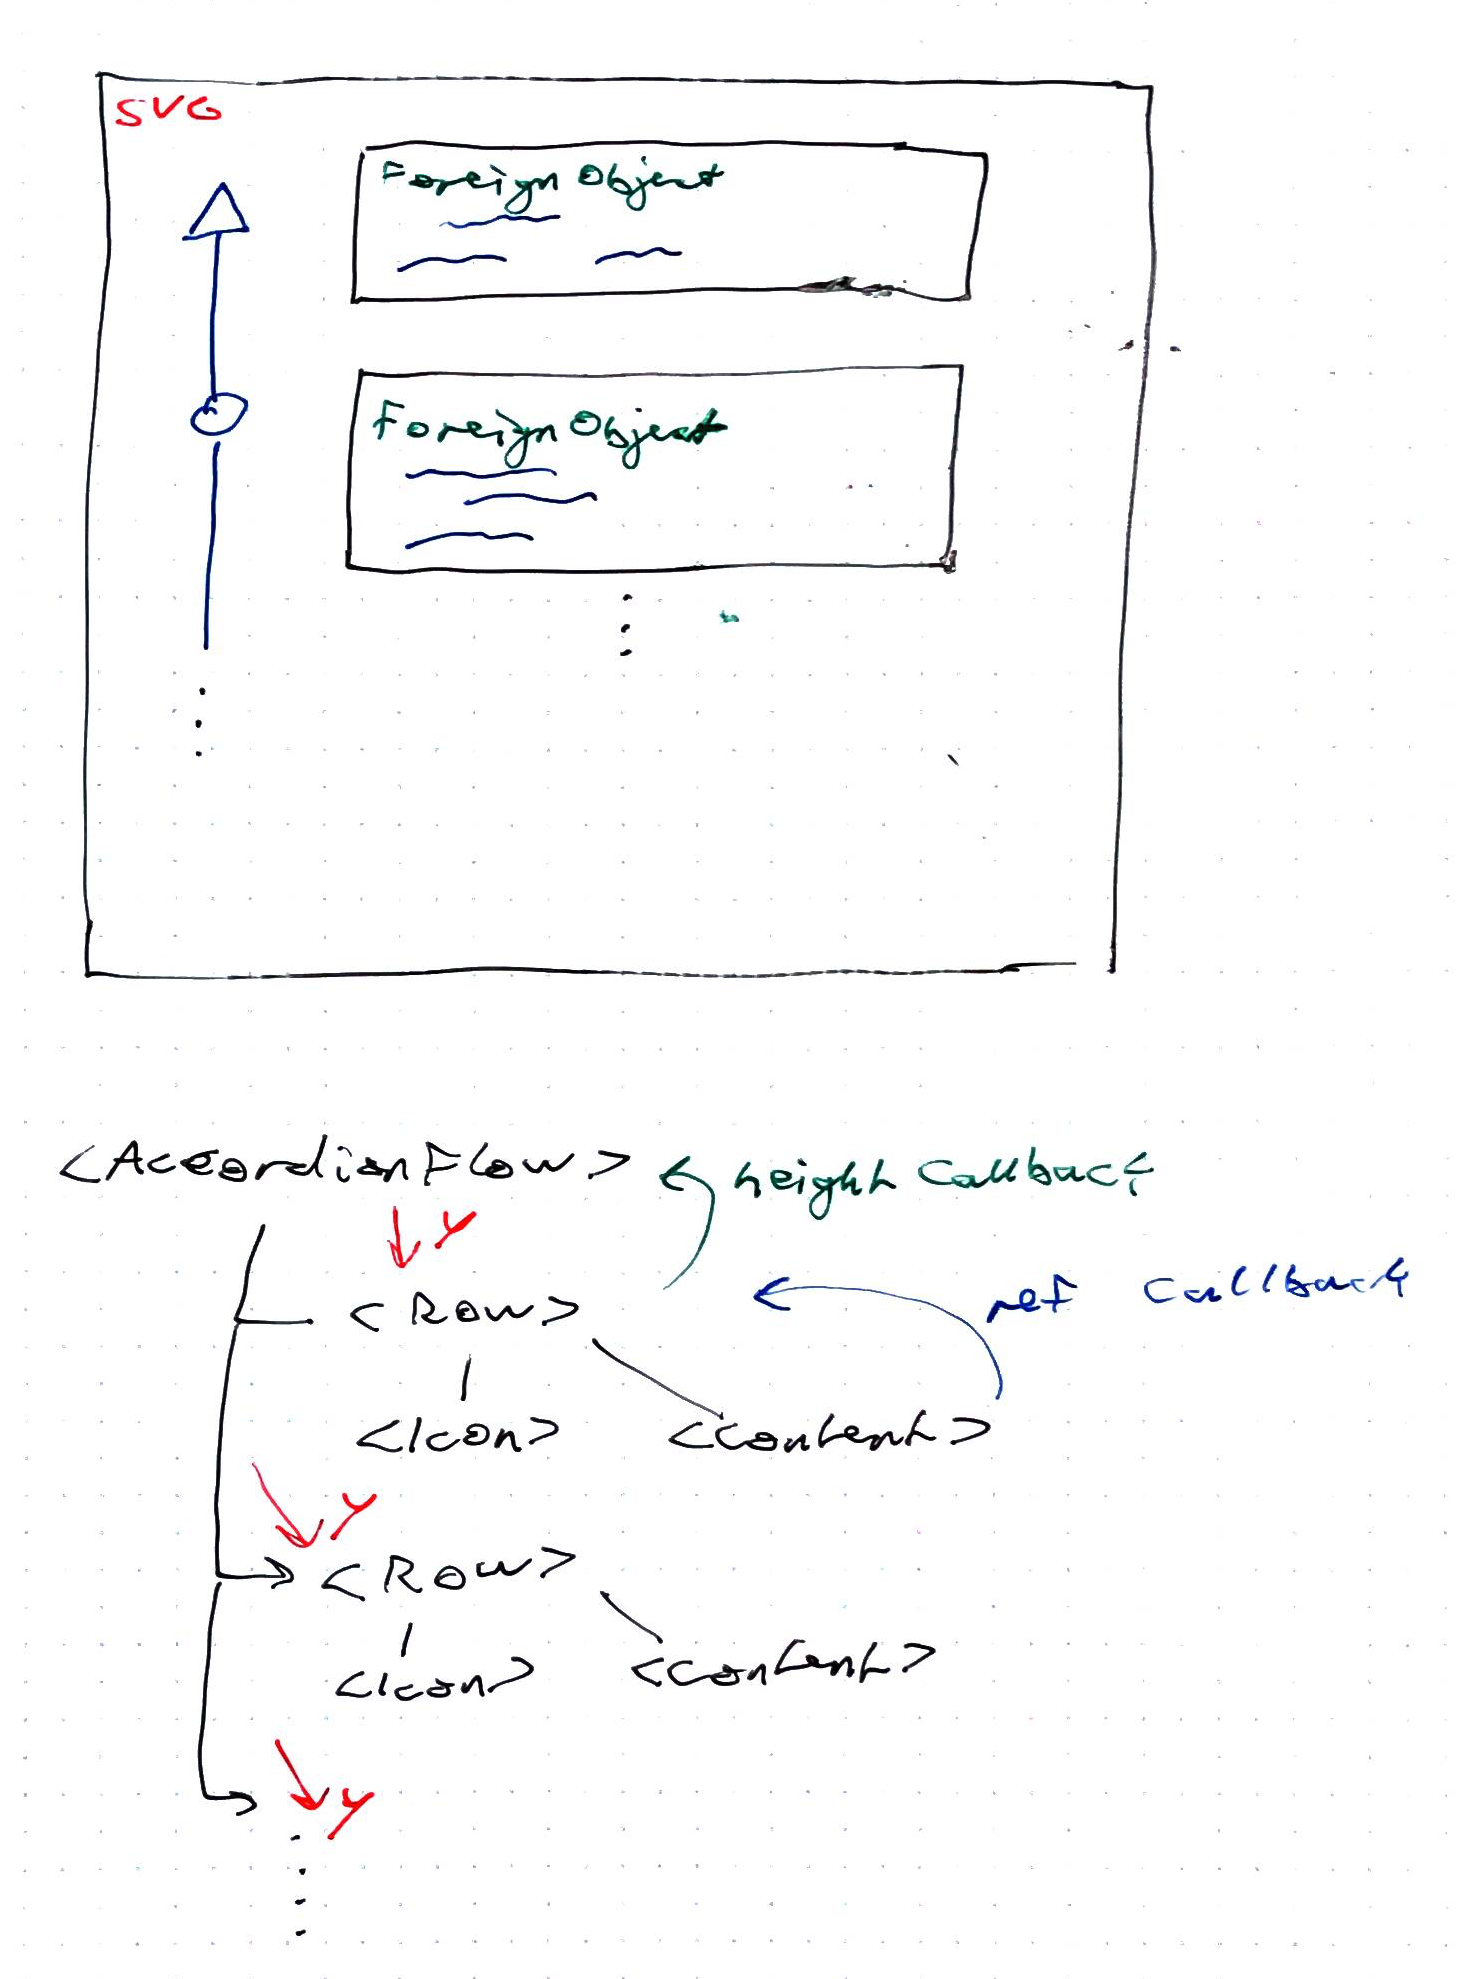 SVG
Foreign Object
Foreign Object
<AccordianFlow> height Callback
y
ref callback
<Row>
<Icon> <Content>
y
<Row>
<Icon> <Content>
y